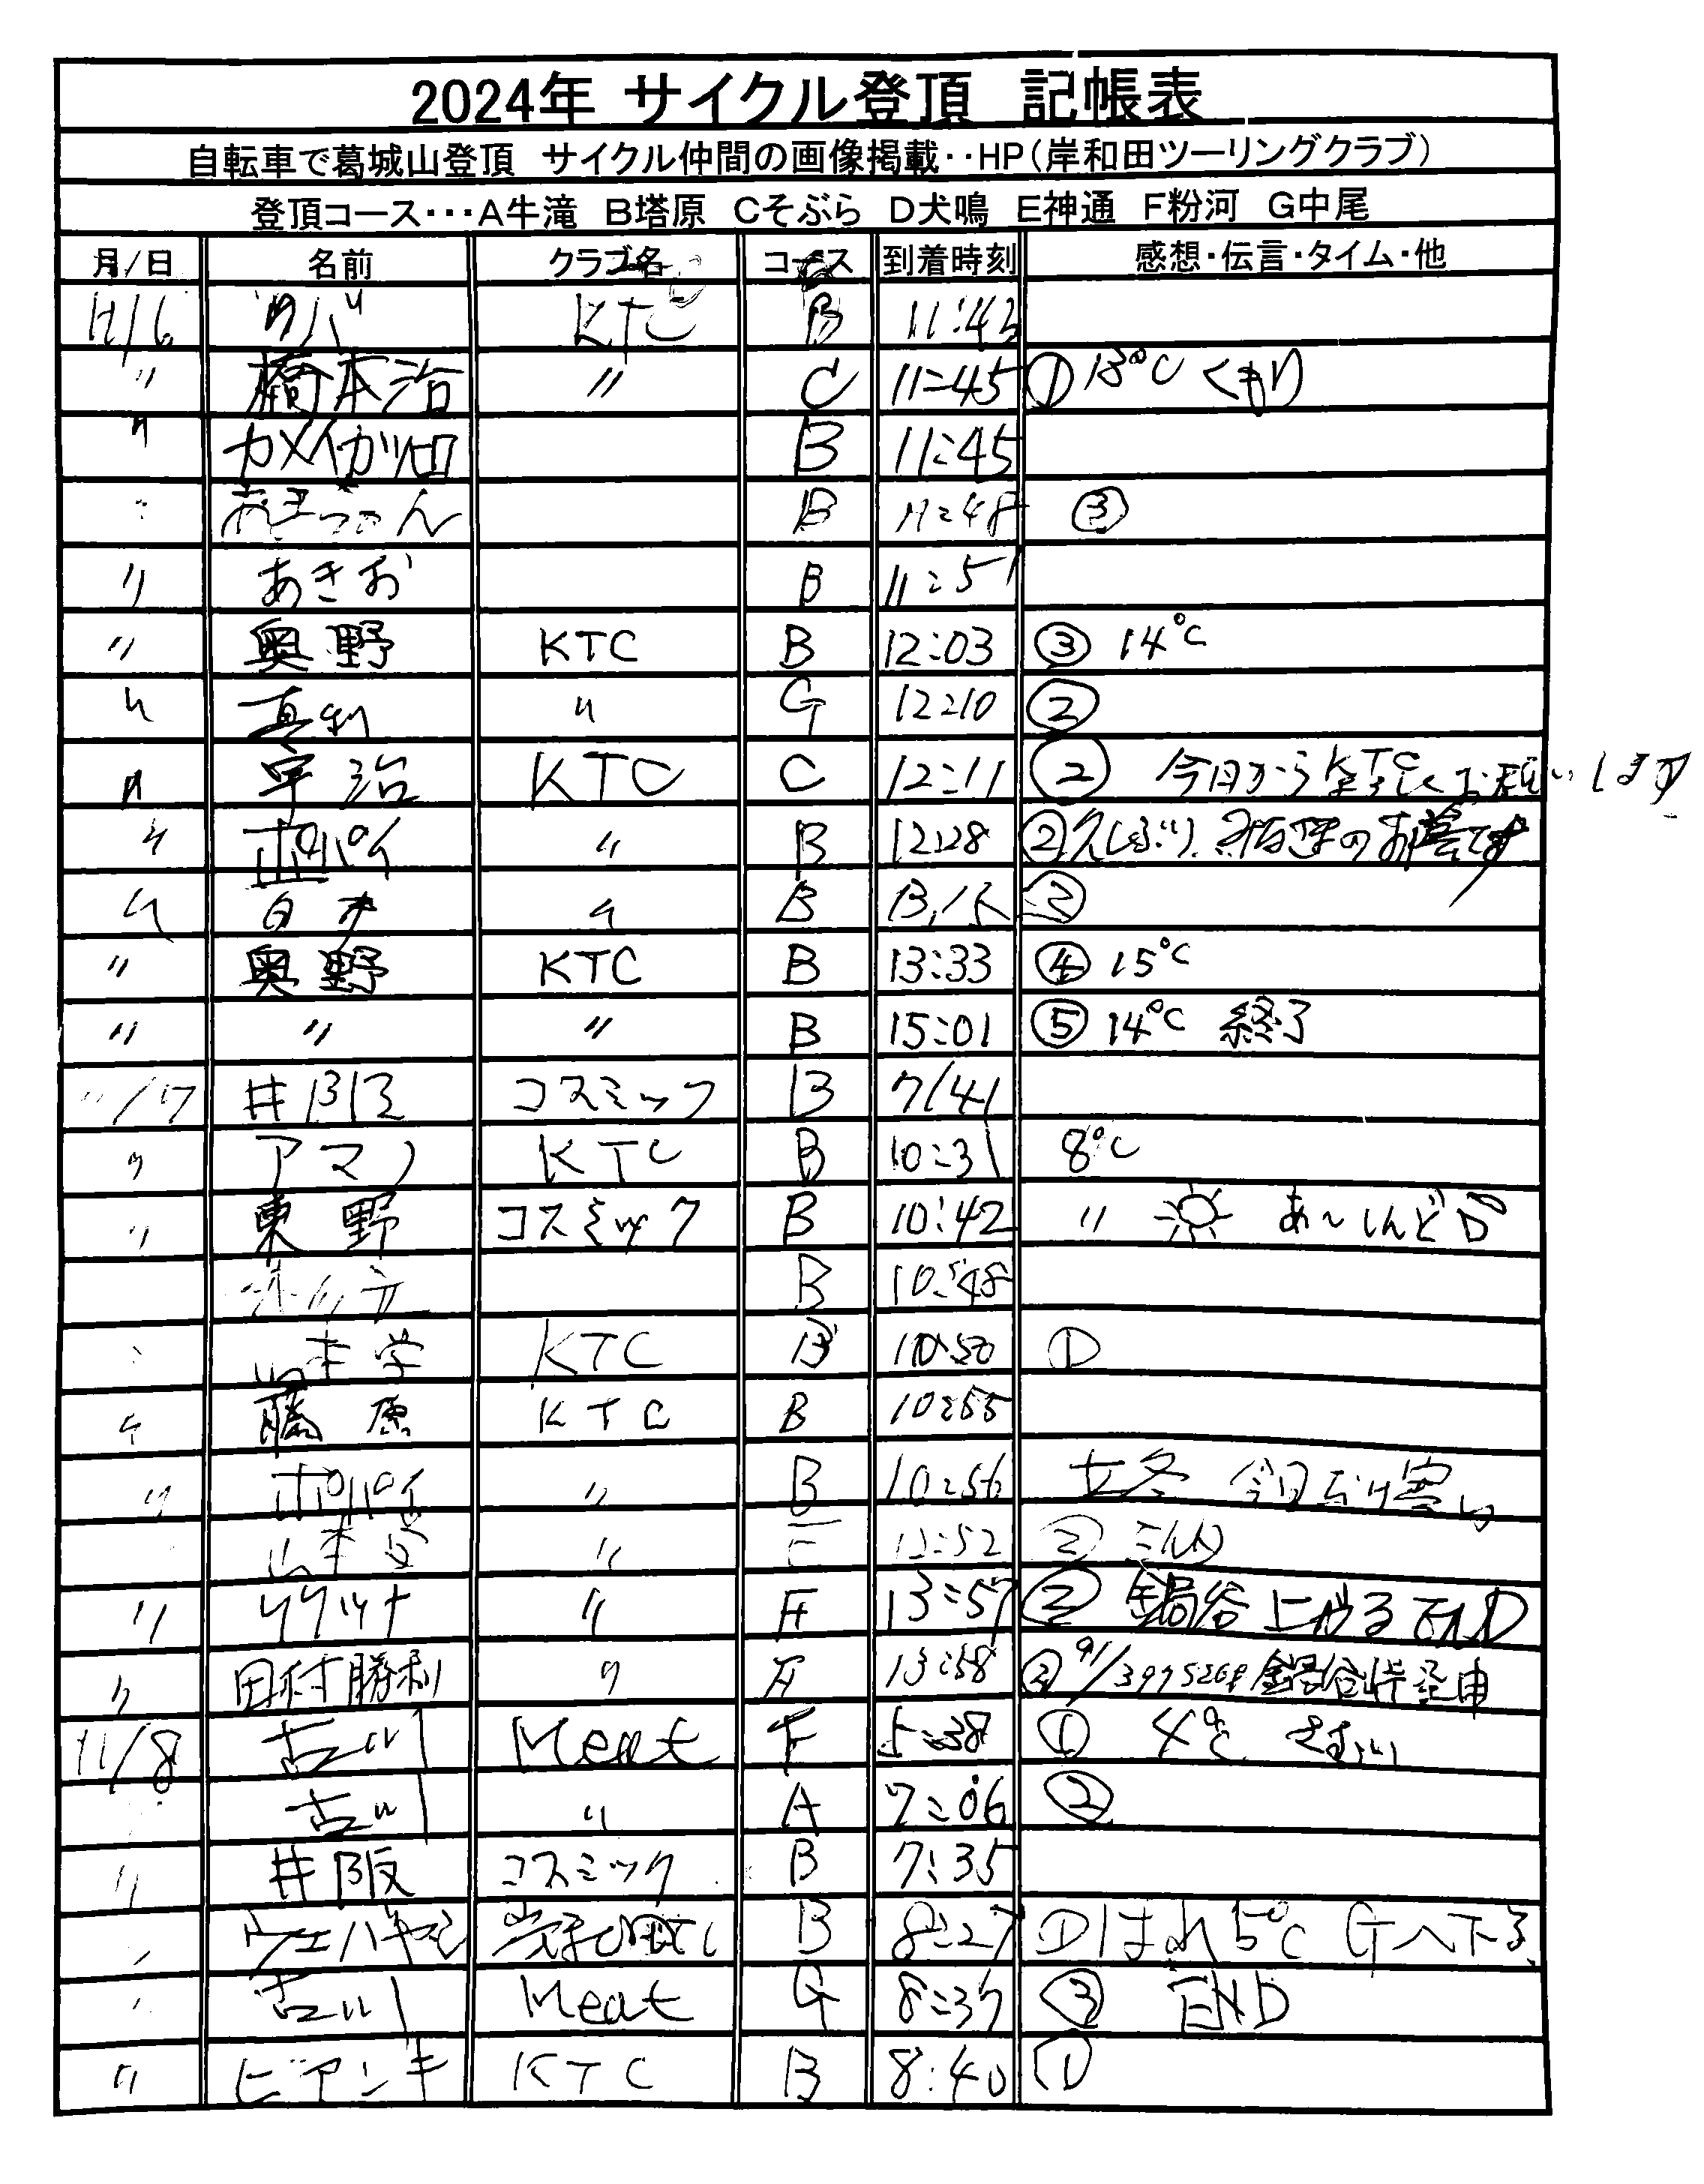 2024年 サイクル登頂 記帳表
自転車で葛城山登頂 サイクル仲間の画像掲載‥HP(岸和田ツーリングクラブ)
登頂コース･･･A牛滝 B塔原 Cそぶら D犬鳴 E神通 F粉河 G中尾
月/日 名前 クラブ名 コース 到着時刻 感想・伝言・タイム・他
11/6 KTC B 11:43
〃 橋本治 〃 C 11:45 ① 13℃ くもり
〃 カメイカツロ B 11:45
〃 B 11:48 ③
〃 あきお B 11:51
〃 奥野 KTC B 12:03 ③ 14℃
〃 真利 〃 G 12:10 ②
〃 宇治 KTC C 12:11 ② 今日からKTC お願いします
〃 ポパイ 〃 B 12:28 ② 久しぶり
〃 白井 〃 B ②
〃 奥野 KTC B 13:33 ④ 15℃
〃 〃 〃 B 15:01 ⑤ 14℃ 終了
11/7 井阪 コスミック B 7/41
〃 アマノ KTC B 10:31 8℃
〃 東野 コスミック B 10:42 〃 あ～しんど
B 10:48
〃 山本学 KTC B 10:50 ①
〃 藤原 KTC B 10:55
〃 ポパイ 〃 B 10:56 立冬 今日だけ寒い
山本学 〃 F 13:52 ②
〃 〃 F 13:57 ② 鍋谷 END
〃 田村勝利 〃 F 13:58 ② 鍋谷峠経由
11/8 古川 Meat F 5:38 ① 4℃ さむい
古川 〃 A 7:06 ②
〃 井阪 コスミック B 7:35
〃 B 8:27 ① はれ 5℃ Gへ下る
〃 古川 Meat G 8:37 ③ END
〃 ビアンキ KTC B 8:40 ①